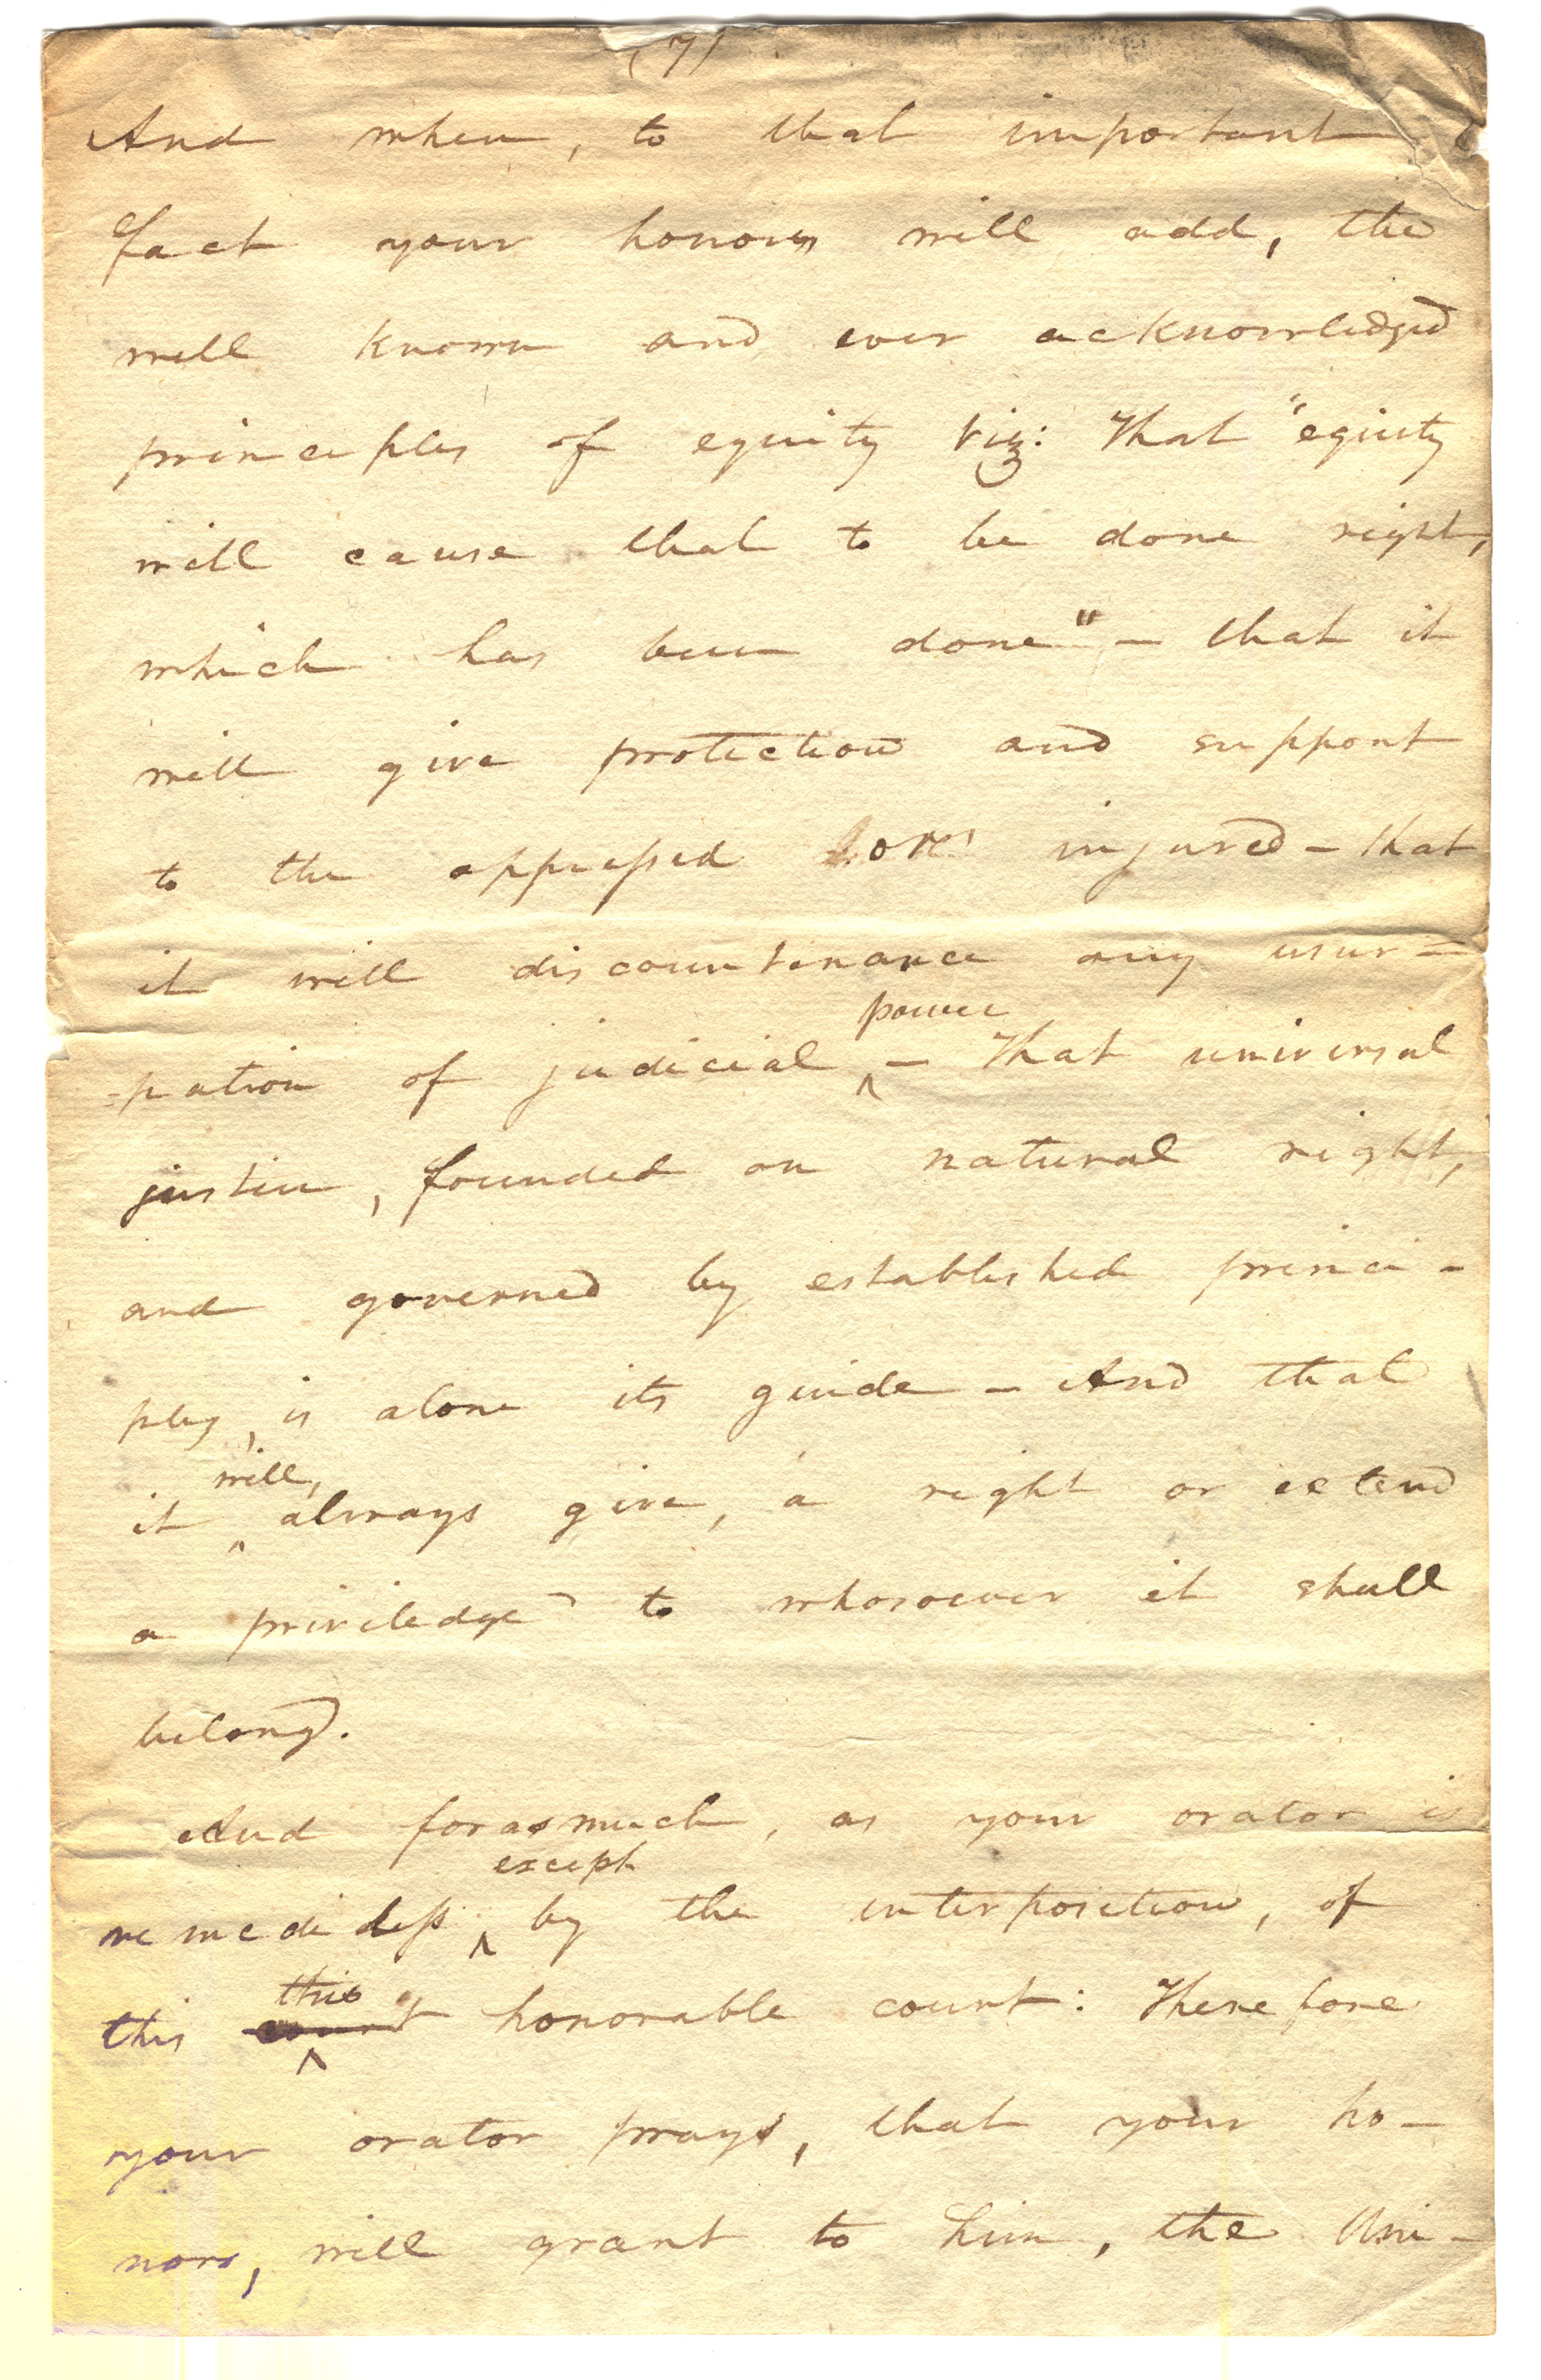 (7)
And when, to that important
fact your honors will add, the
well known and ever acknowledged
principles of equity viz: That "equity
will cause that to be done right,
which has been done" – that it
will give protection and support
to the oppressed or injured – that
it will discountenance any usur=
=pation of judicial power – That universal
justice, founded on natural right,
and governed by established princi-
ples, is alone its guide – And that
it will, always give, a right or extend
a priviledge to whosoever it shall
belong.
And forasmuch, as your orator is
remedidless except by the interposition, of
this honorable court: Therefore
your orator prays, that your ho-
nors, will grant to him, the Uni-